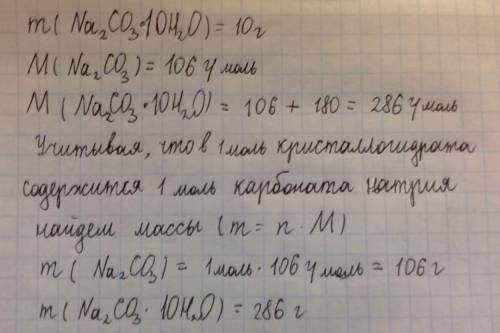 m(Na₂CO₃·10H₂O) = 10г
M(Na₂CO₃) = 106 г/моль
M(Na₂CO₃·10H₂O) = 106 + 180 = 286 г/моль
Учитывая, что в 1 моль кристаллогидрата
содержится 1 моль карбоната натрия
найдем массы (m = n·M)
m(Na₂CO₃) = 1моль·106 г/моль = 106 г
m(Na₂CO₃·10H₂O) = 286 г